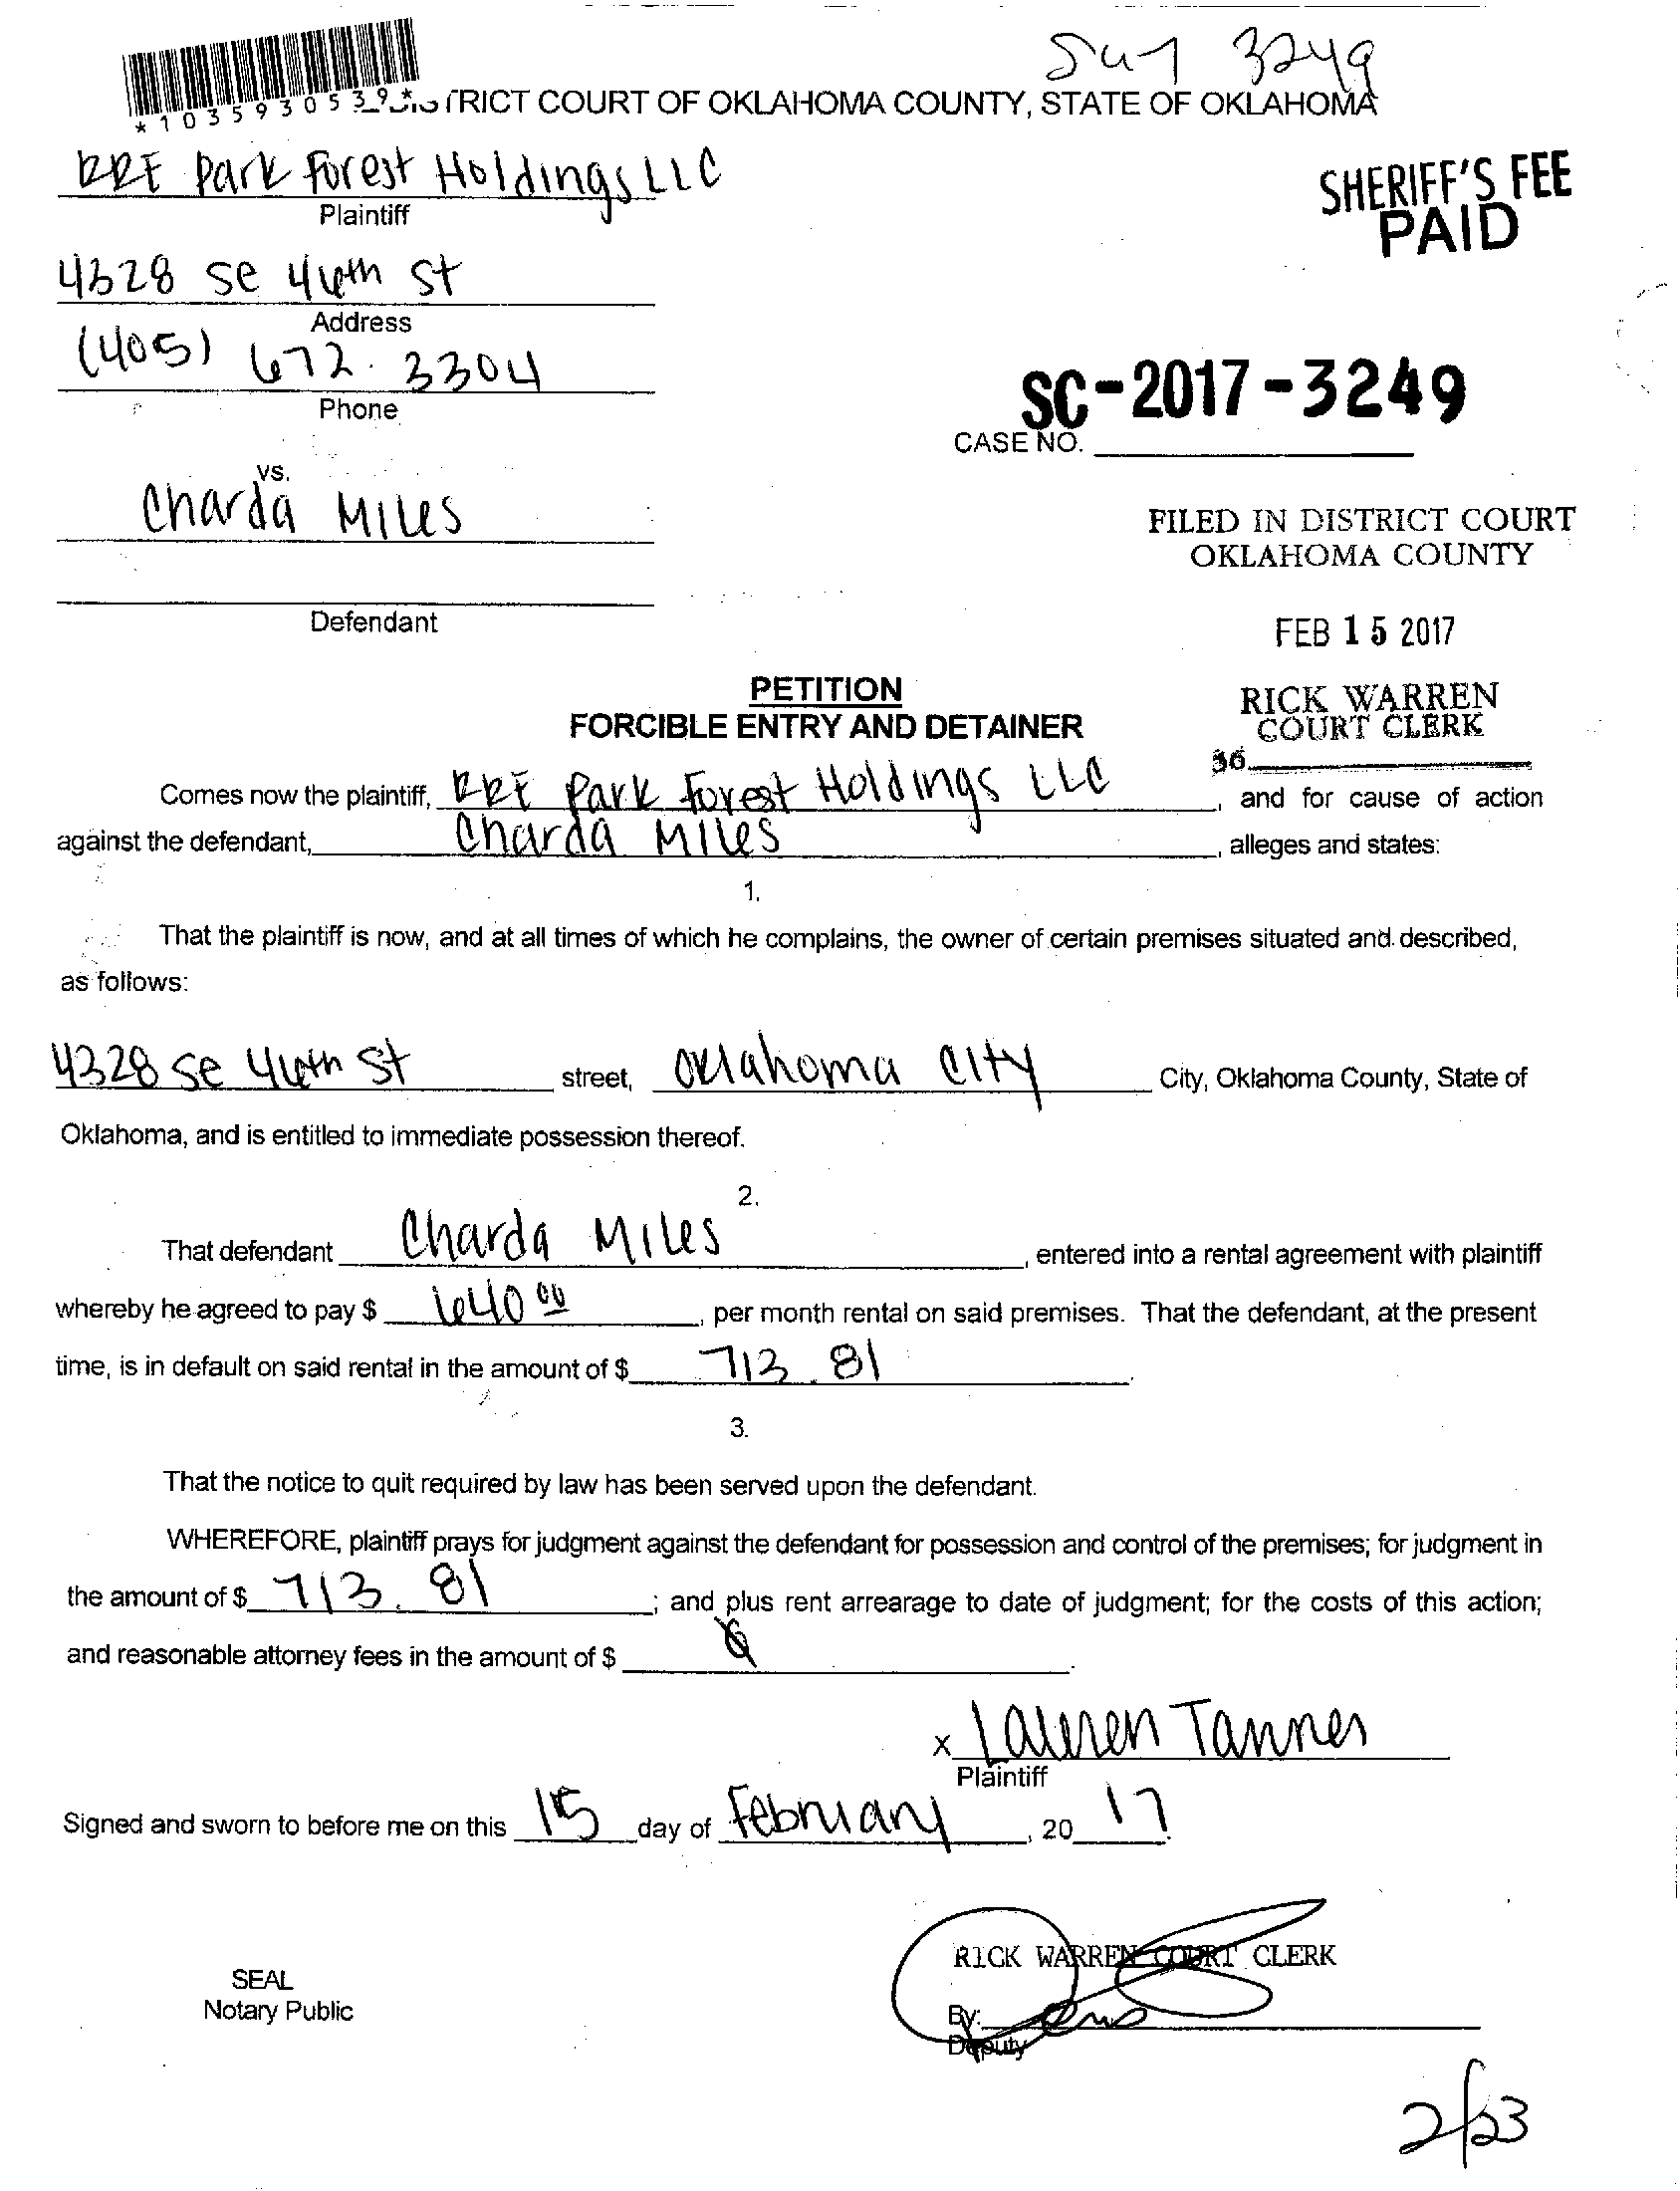 3249
*1035930539*
TRICT COURT OF OKLAHOMA COUNTY, STATE OF OKLAHOMA
RRE Park Forest Holdings LLC
Plaintiff
SHERIFF'S FEE
PAID
4328 se 46th St
Address
(405) 672.3304
Phone
SC-2017-3249
CASE NO.
vs.
Charda Miles
FILED IN DISTRICT COURT
OKLAHOMA COUNTY
Defendant
FEB 15 2017
PETITION
RICK WARREN
FORCIBLE ENTRY AND DETAINER
COURT CLERK
36
Comes now the plaintiff, RRE Park Forest Holdings LLC, and for cause of action
against the defendant, Charda Miles, alleges and states:
1.
That the plaintiff is now, and at all times of which he complains, the owner of certain premises situated and described,
as follows:
4328 se 46th St street, Oklahoma City City, Oklahoma County, State of
Oklahoma, and is entitled to immediate possession thereof.
2.
That defendant Charda Miles, entered into a rental agreement with plaintiff
whereby he agreed to pay $ 640 00, per month rental on said premises. That the defendant, at the present
time, is in default on said rental in the amount of $ 713.81.
3.
That the notice to quit required by law has been served upon the defendant.
WHEREFORE, plaintiff prays for judgment against the defendant for possession and control of the premises; for judgment in
the amount of $ 713.81; and plus rent arrearage to date of judgment; for the costs of this action;
and reasonable attorney fees in the amount of $ .
x Lauren Tanner
Plaintiff
Signed and sworn to before me on this 15 day of February, 20 17.
RICK WARREN COURT CLERK
SEAL
Notary Public
By:
Deputy
2/23